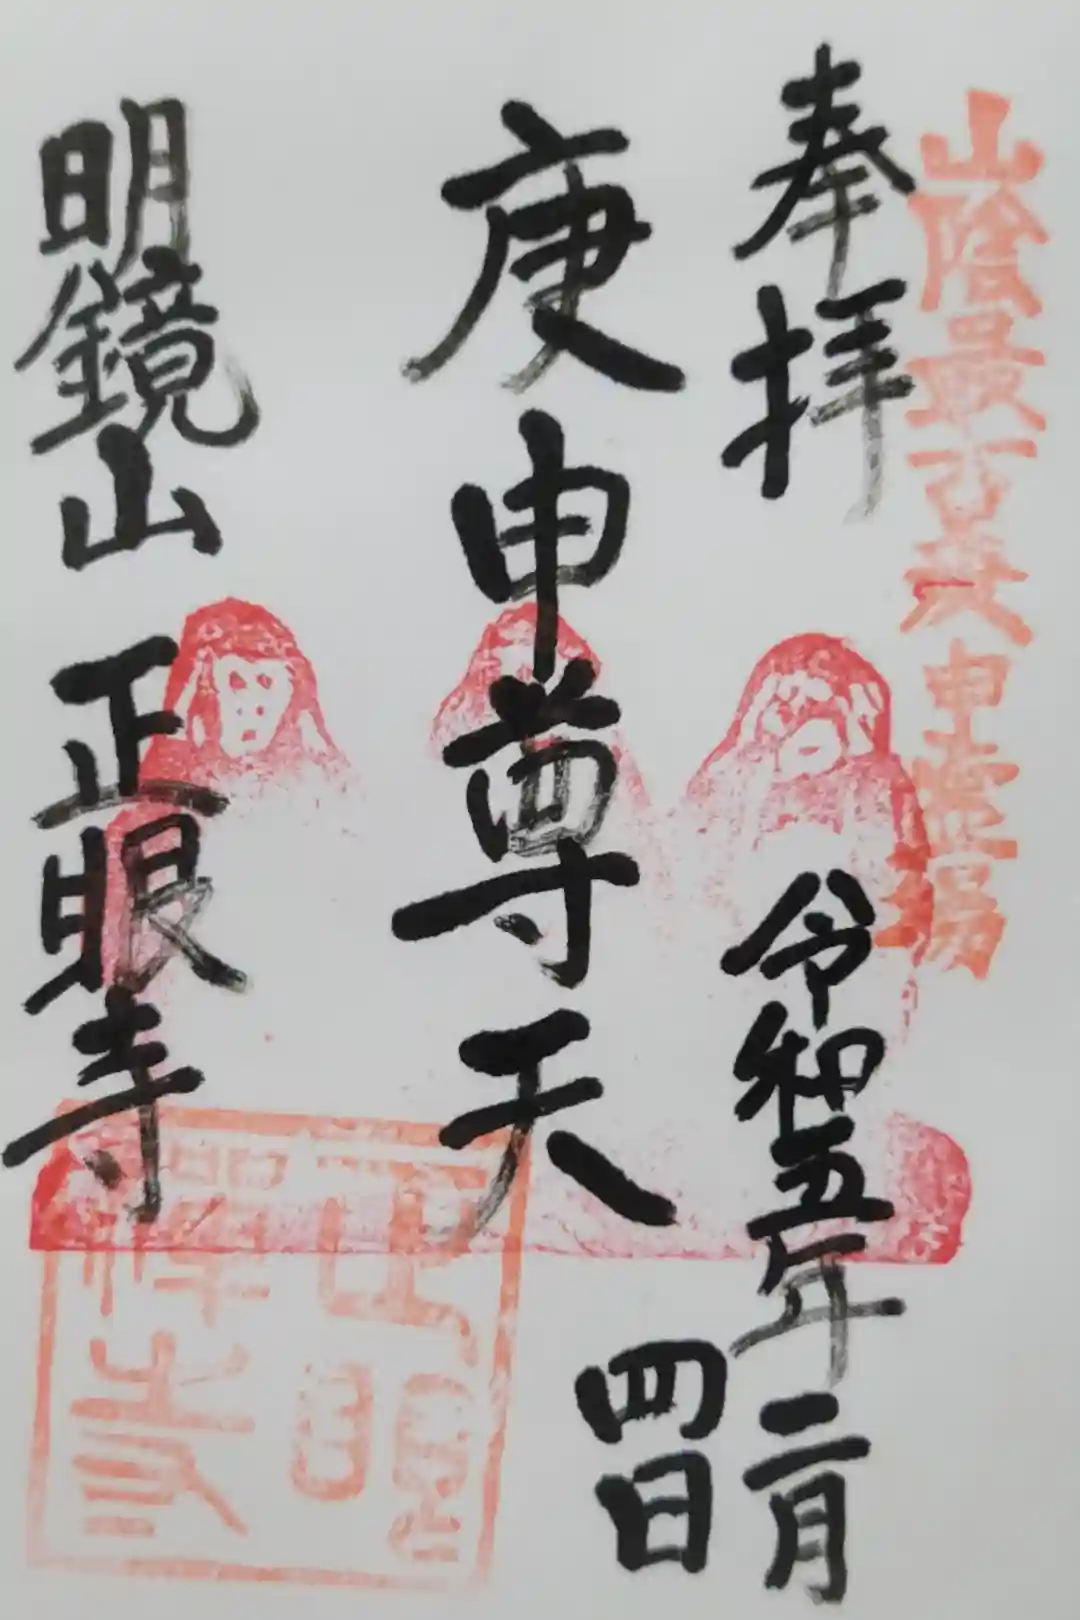 山陰最古庚申霊場
奉拝
令和五年二月
四日
庚申尊天
明鏡山 正眼寺
正眼
禅寺